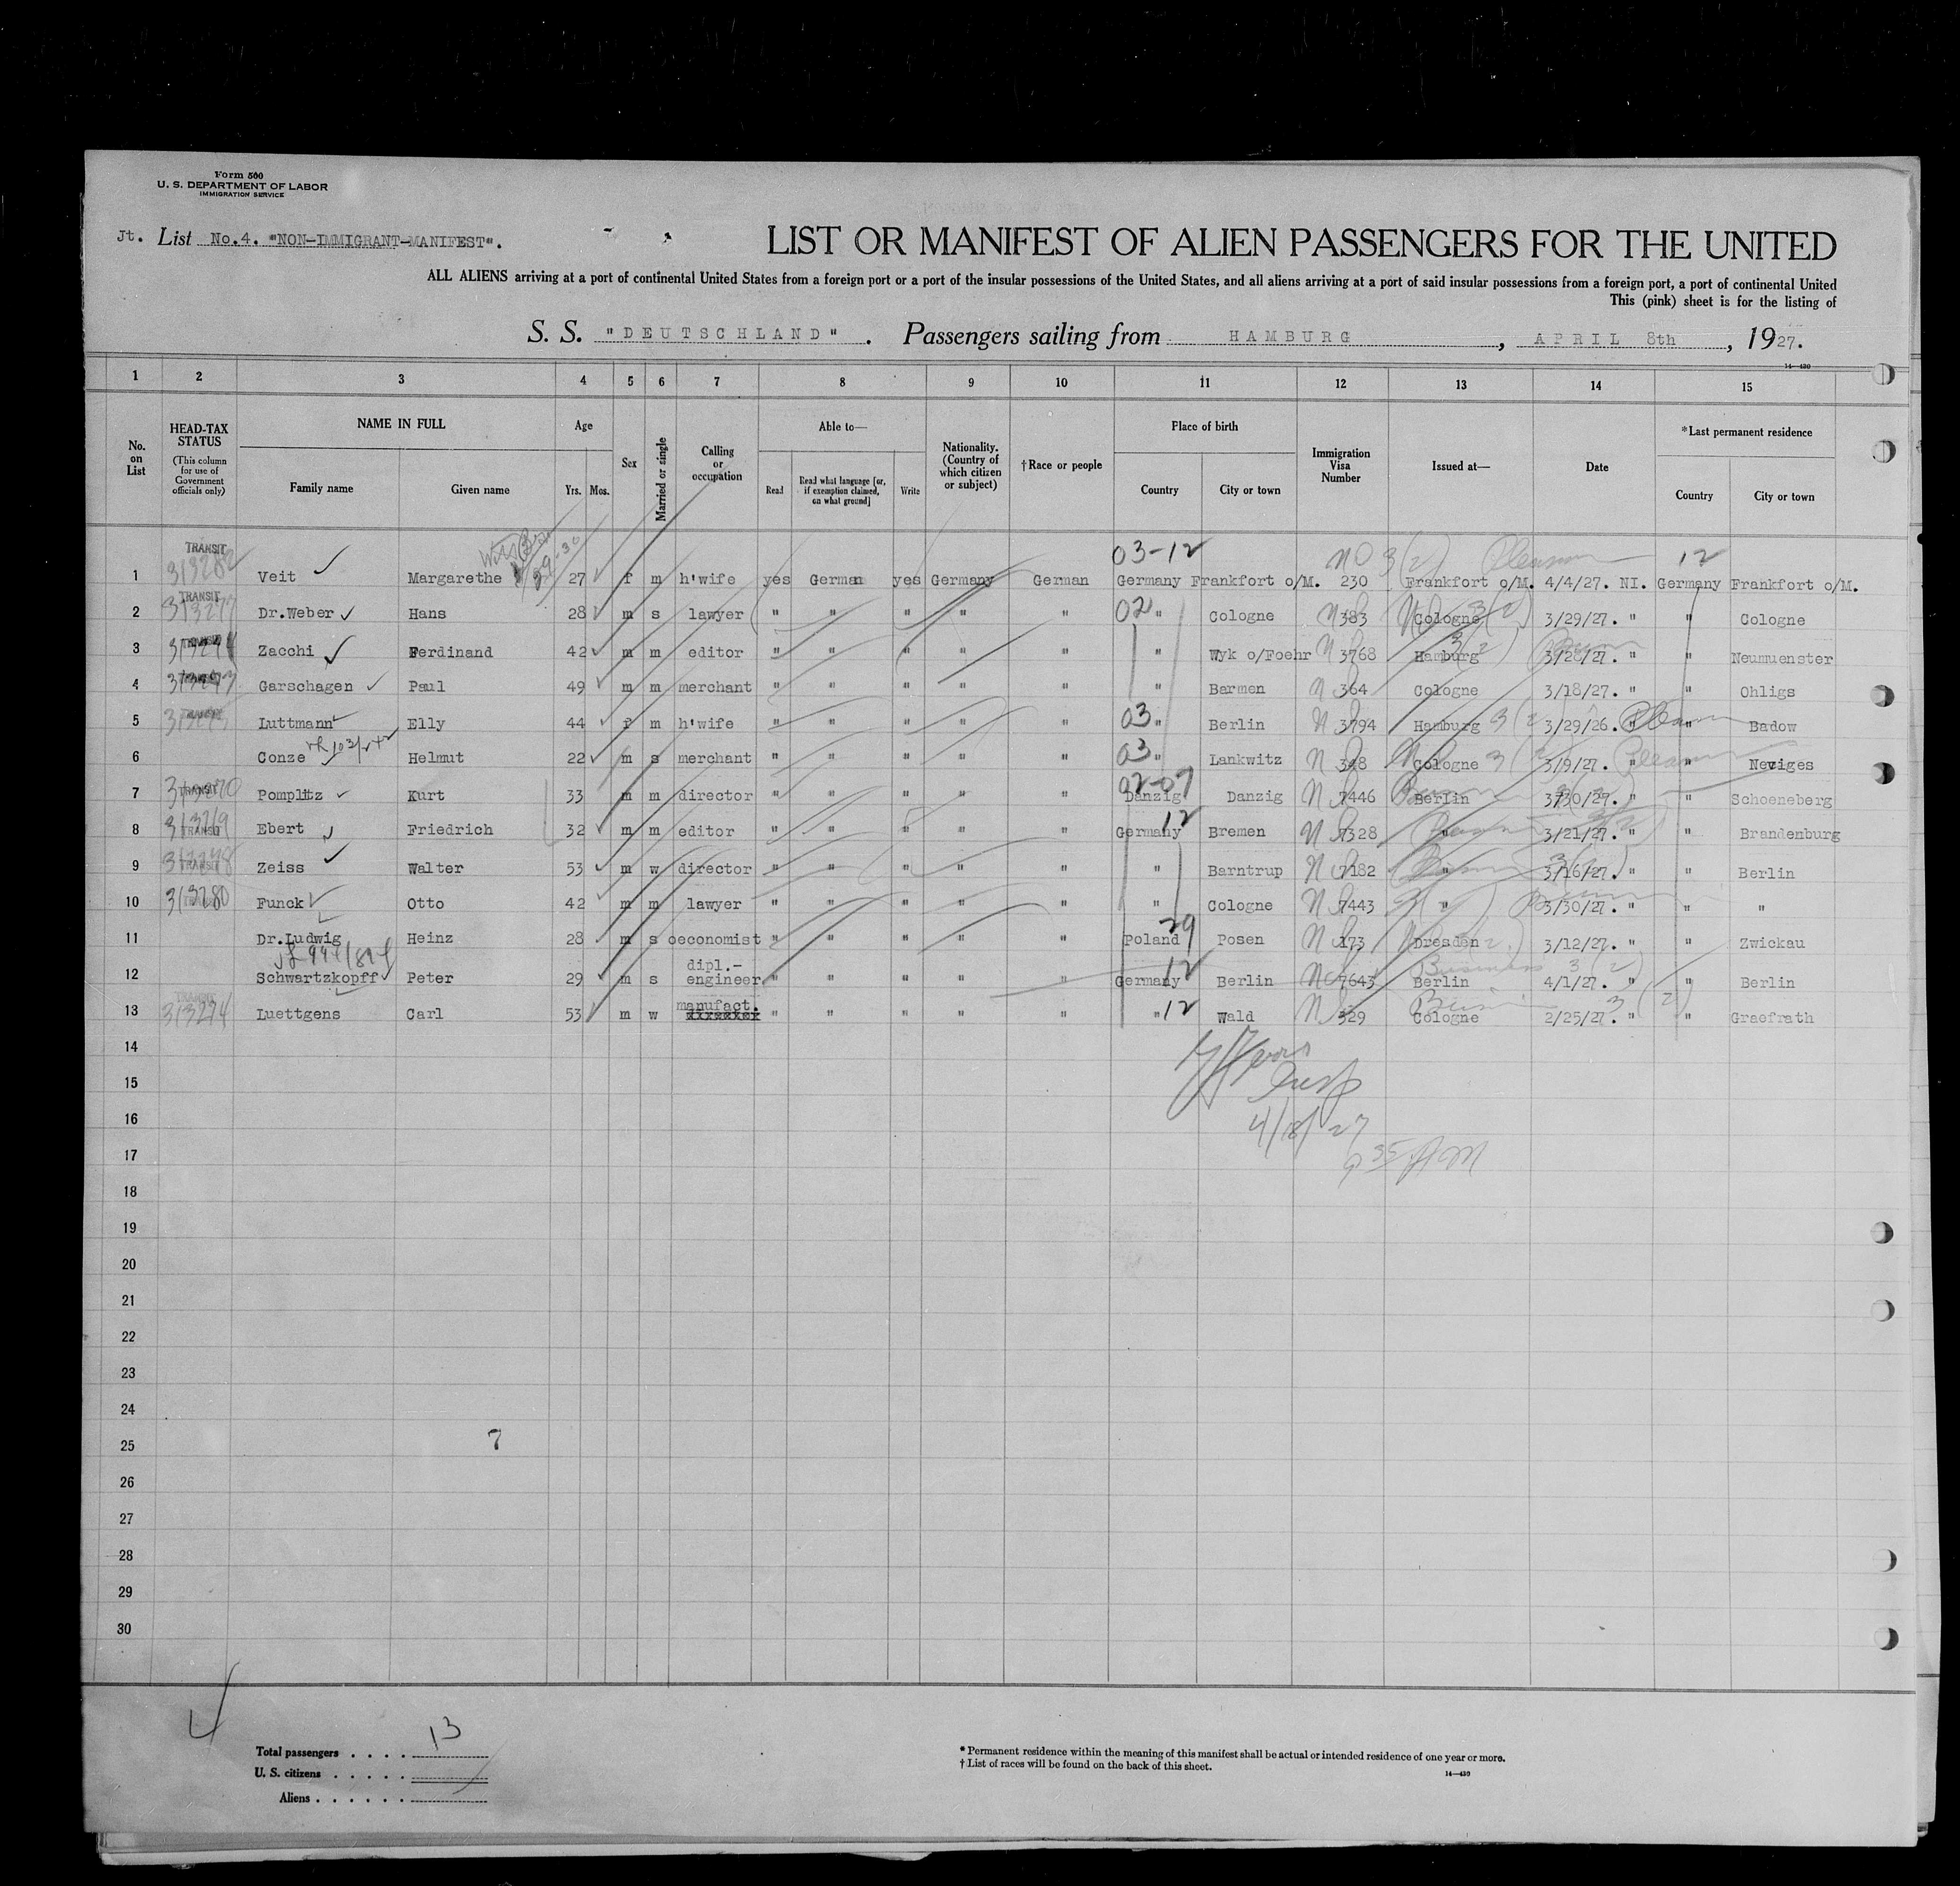 Form 500
U. S. DEPARTMENT OF LABOR
IMMIGRATION SERVICE
Jt. List No.4. "NON-IMMIGRANT-MANIFEST".
LIST OR MANIFEST OF ALIEN PASSENGERS FOR THE UNITED
ALL ALIENS arriving at a port of continental United States from a foreign port or a port of the insular possessions of the United States, and all aliens arriving at a port of said insular possessions from a foreign port, a port of continental United
This (pink) sheet is for the listing of
S. S. "DEUTSCHLAND". Passengers sailing from HAMBURG, APRIL 8th, 1927.
14—430
1 2 3 4 5 6 7 8 9 10 11 12 13 14 15
No. on List
HEAD-TAX STATUS
(This column for use of Government officials only)
NAME IN FULL
Family name
Given name
Age
Yrs. Mos.
Sex
Married or single
Calling or occupation
Able to—
Read
Read what language [or, if exemption claimed, on what ground]
Write
Nationality. (Country of which citizen or subject)
†Race or people
Place of birth
Country
City or town
Immigration Visa Number
Issued at—
Date
*Last permanent residence
Country
City or town
03-12 3(2) 12
TRANSIT
1 313282 Veit Margarethe 27 f m h'wife yes German yes Germany German Germany Frankfort o/M. 230 Frankfort o/M. 4/4/27. NI. Germany Frankfort o/M.
TRANSIT
2 Dr.Weber Hans 28 m s lawyer " " " " " 02 " Cologne 383 Cologne 3/29/27. " " Cologne
3 Zacchi Ferdinand 42 m m editor " " " " " " Wyk o/Foehr 3768 Hamburg 3/28/27. " " Neumuenster
4 Garschagen Paul 49 m m merchant " " " " " " Barmen 364 Cologne 3/18/27. " " Ohligs
5 Luttmann Elly 44 f m h'wife " " " " " 03 " Berlin 3794 Hamburg 3/29/26. " " Badow
6 Conze Helmut 22 m s merchant " " " " " 03 " Lankwitz 348 Cologne 3/9/27. " " Neviges
7 TRANSIT Pomplitz Kurt 33 m m director " " " " " Danzig Danzig 7446 Berlin 3/30/27. " " Schoeneberg
8 TRANSIT Ebert Friedrich 32 m m editor " " " " " Germany 12 Bremen 7328 " 3/21/27. " " Brandenburg
9 TRANSIT Zeiss Walter 53 m w director " " " " " " Barntrup 7182 " 3/16/27. " " Berlin
10 313280 Funck Otto 42 m m lawyer " " " " " " Cologne 7443 " 3/30/27. " " "
11 Dr.Ludwig Heinz 28 m s oeconomist " " " " " Poland 29 Posen 173 Dresden 3/12/27. " " Zwickau
12 Schwartzkopff Peter 29 m s dipl.-engineer " " " " " Germany 12 Berlin 7643 Berlin 4/1/27. " " Berlin
13 313274 Luettgens Carl 53 m w manufact. " " " " " " 12 Wald 329 Cologne 2/25/27. " " Graefrath
14
15
16
4/18/27
17
9 35 AM
18
19
20
21
22
23
24
25
7
26
27
28
29
30
4
Total passengers . . . . 13
U. S. citizens . . . . .
Aliens . . . . . .
* Permanent residence within the meaning of this manifest shall be actual or intended residence of one year or more.
† List of races will be found on the back of this sheet.
14—430